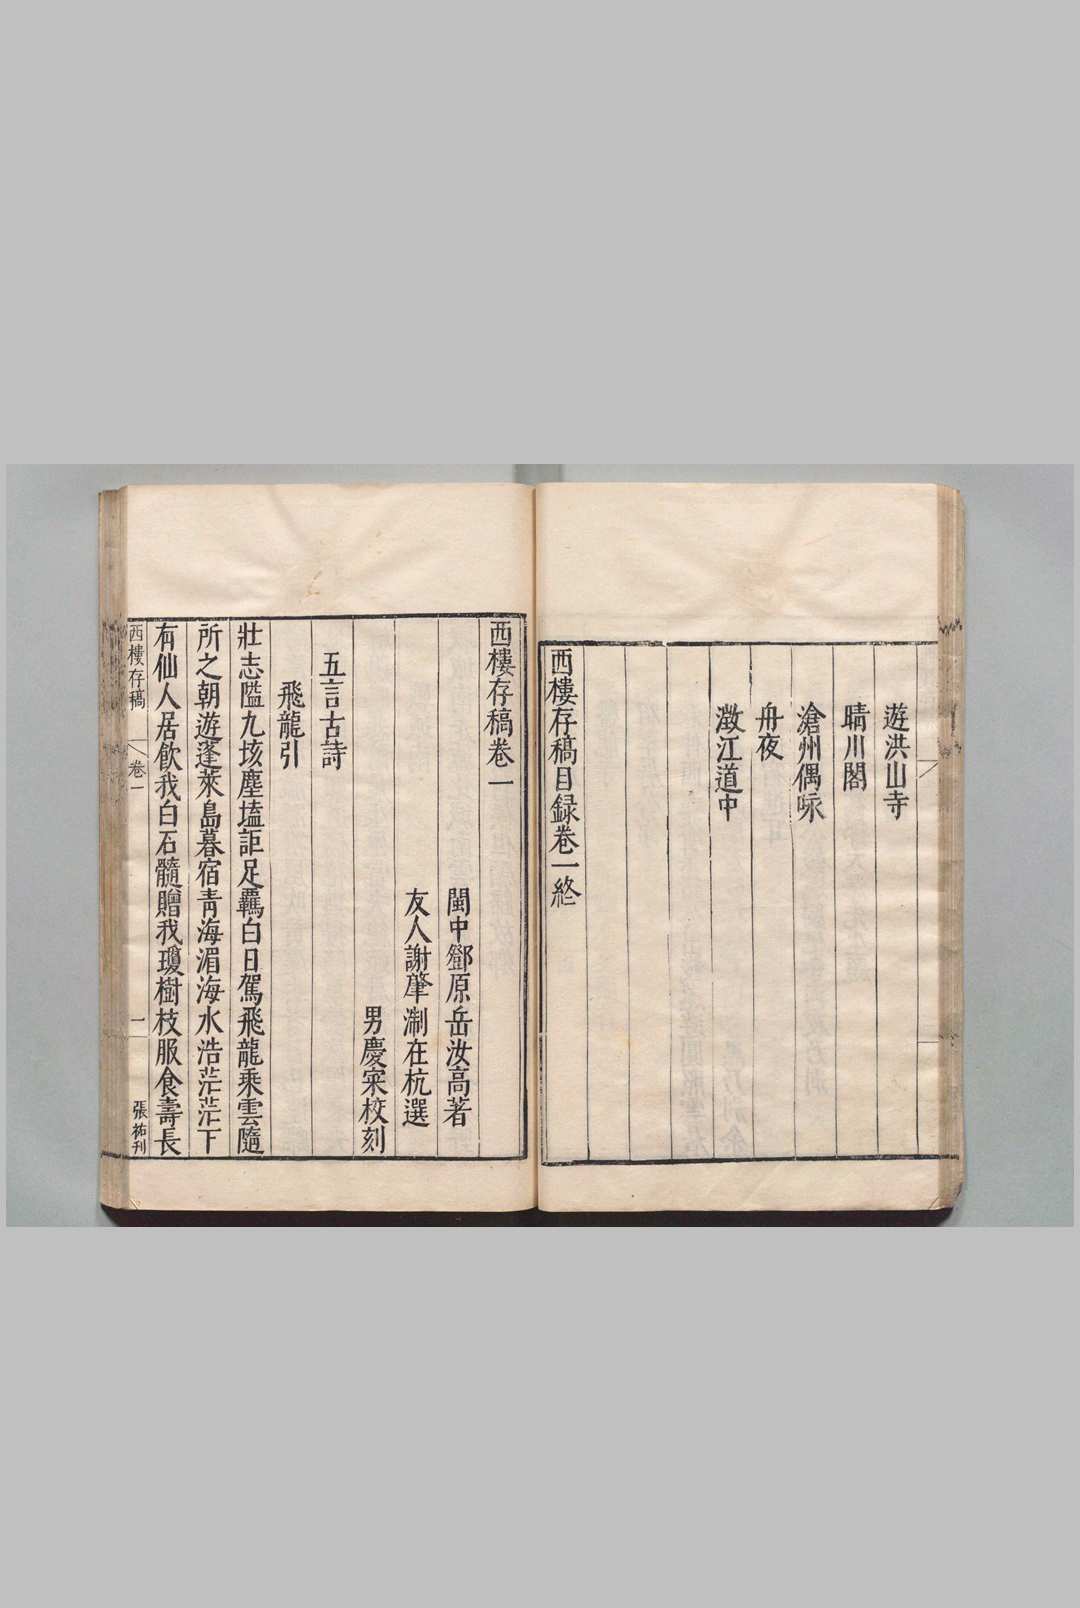 遊洪山寺
晴川閣
滄州偶咏
舟夜
澂江道中
西樓存稿目録卷一終
西樓存稿卷一
閩中鄧原岳汝高著
友人謝肇淛在杭選
男慶寀校刻
五言古詩
飛龍引
壯志隘九垓塵壒詎足羈白日駕飛龍乘雲隨
所之朝遊蓬萊島暮宿青海湄海水浩茫茫下
有仙人居飲我白石髓贈我瓊樹枝服食壽長
西樓存稿
卷一
一
張祐刋